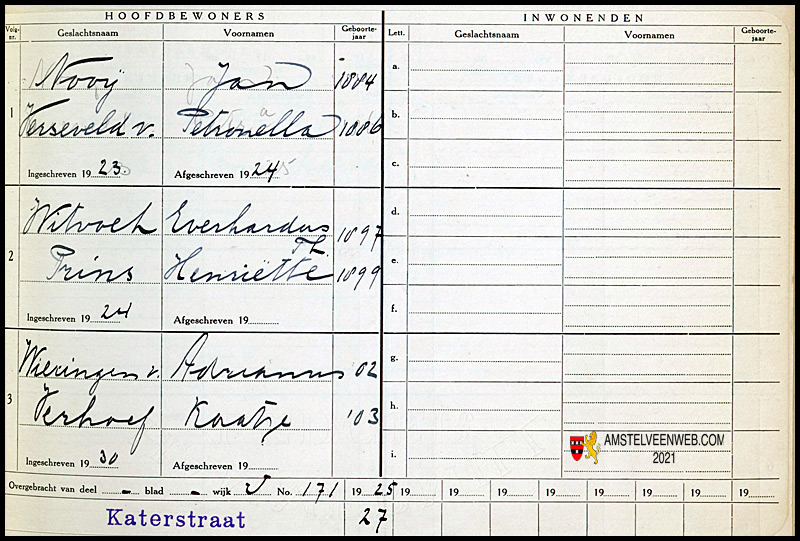 HOOFDBEWONERS INWONENDEN
Volg-nr. Geslachtsnaam Voornamen Geboorte-jaar Lett. Geslachtsnaam Voornamen Geboorte-jaar
1 Nooij Jan 1884 a.
Verseveld v. Petronella 1886 b.
Ingeschreven 19 23 Afgeschreven 19 24 c.
2 Witvoet Everhardus Th. 1897 d.
Prins Henriëtte 1899 e.
Ingeschreven 19 24 Afgeschreven 19 f.
3 Wieringen v. Adrianus '02 g.
Verhoef Kaatje '03 h.
Ingeschreven 19 30 Afgeschreven 19 i.
AMSTELVEENWEB.COM
2021
Overgebracht van deel - blad - wijk V No. 171 19 25 19 19 19 19 19 19 19
Katerstraat 27